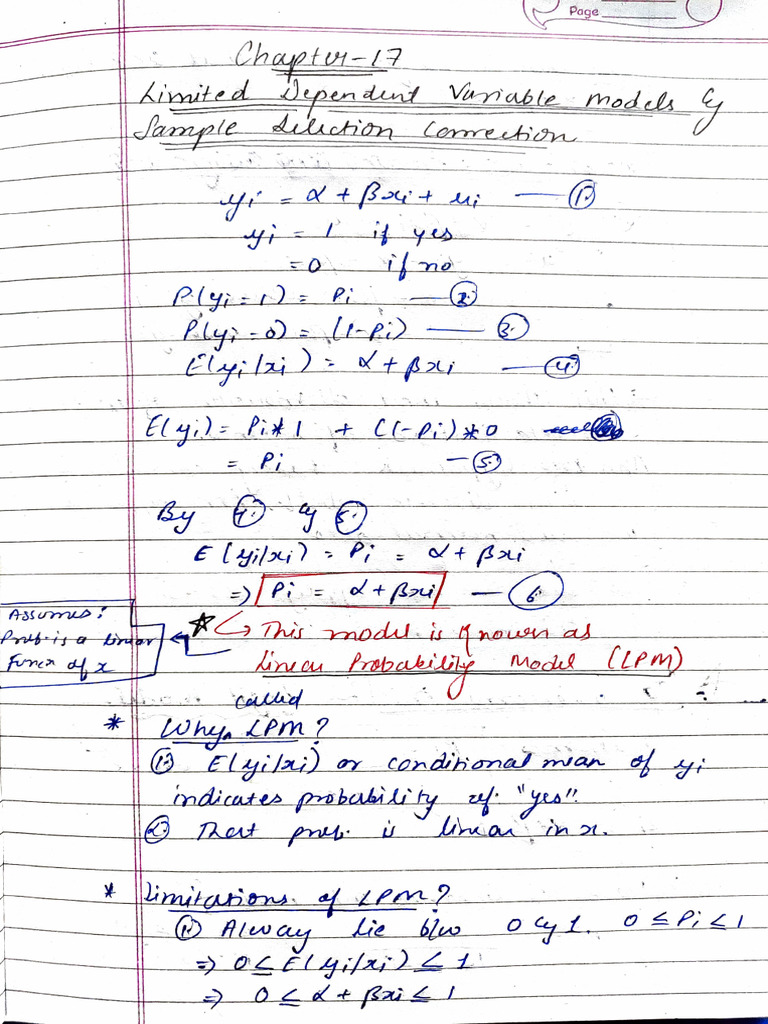 Page
Chapter-17
Limited Dependent Variable Models &
Sample Selection Correction
yi = α + βxi + ui — ①
yi = 1 if yes
= 0 if no
P(yi = 1) = Pi — ②
P(yi = 0) = (1-Pi) — ③
E(yi/xi) = α + βxi — ④
E(yi) = Pi * 1 + (1-Pi) * 0
= Pi — ⑤
By ④ & ⑤
E(yi/xi) = Pi = α + βxi
⇒ Pi = α + βxi — ⑥
Assumes:
Prob. is a linear
Funcn of x
☆ ↪ This model is known as
Linear Probability Model (LPM)
called
* Why LPM?
① E(yi/xi) or conditional mean of yi
indicates probability of "yes".
② That prob. is linear in x.
* Limitations of LPM?
① Alway lie b/w 0 & 1. 0 ≤ Pi ≤ 1
⇒ 0 ≤ E(yi/xi) ≤ 1
⇒ 0 ≤ α + βxi ≤ 1